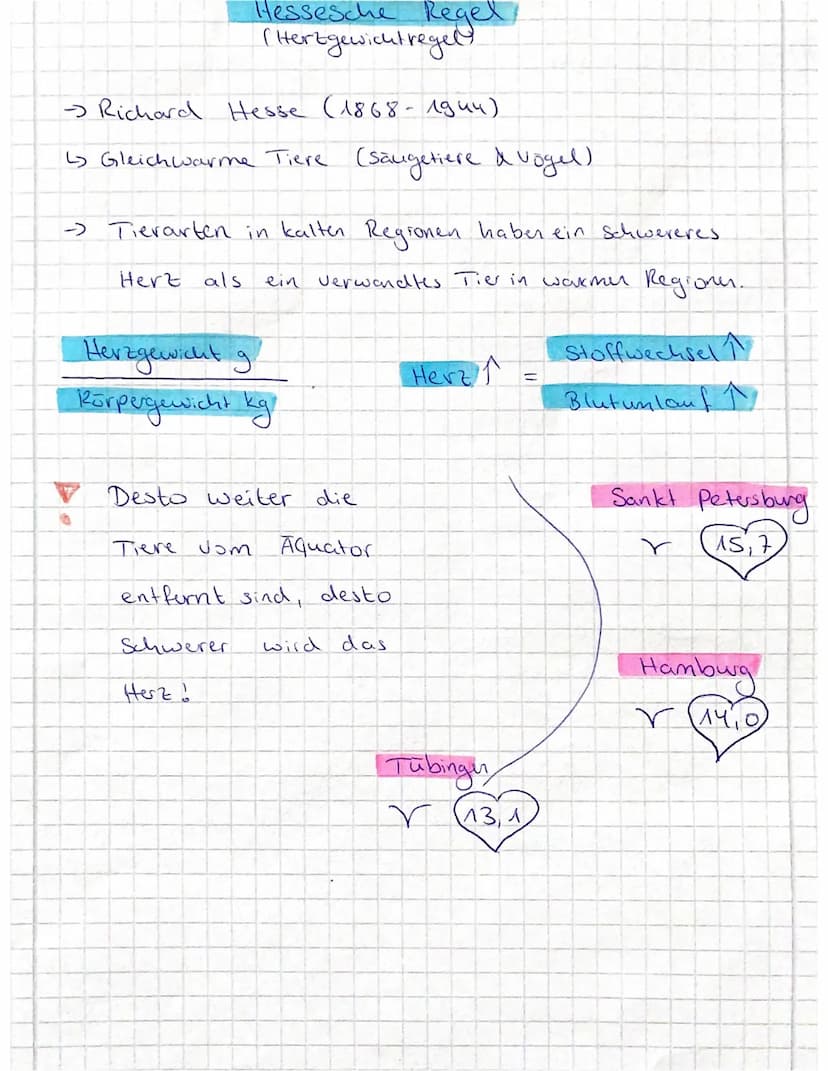 Hessesche Regel
(Herzgewichtregel)
→ Richard Hesse (1868-1944)
↳ Gleichwarme Tiere (Säugetiere & Vögel)
→ Tierarten in kalten Regionen haben ein schwereres
Herz als ein verwandtes Tier in warmen Regionen.
Herzgewicht g
Körpergewicht kg
Herz ↑ =
Stoffwechsel ↑
Blutumlauf ↑
Desto weiter die
Tiere vom Äquator
entfernt sind, desto
schwerer wird das
Herz!
Sankt Petersburg
15,7
Hamburg
14,0
Tübingen
13,1